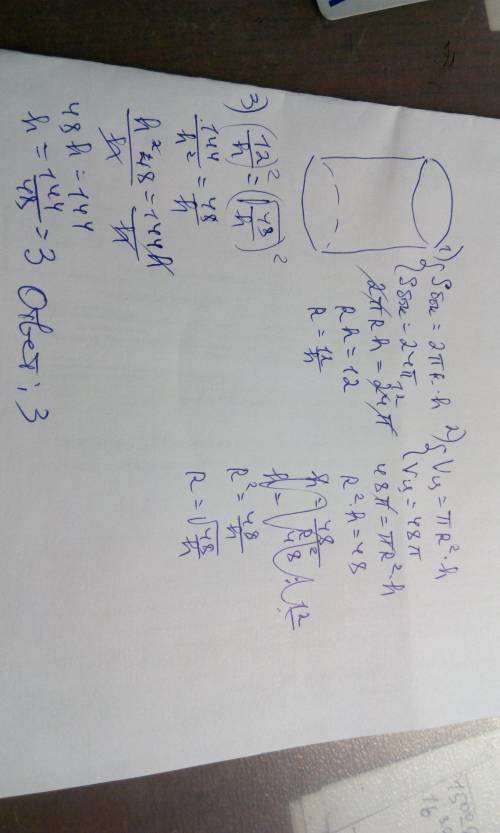 1) { Sбок = 2πR·h
Sбок = 24π
2πRh = 24π 12
Rh = 12
R = 12/h
2) { Vц = πR²·h
Vц = 48π
48π = πR²·h
R²·h = 48
h = 48/R²
R² = 48/h
R = √(48/h)
3) (12/h)² = (√(48/h))²
144/h² = 48/h
h²48 = 144h
48h = 144
h = 144/48 = 3 Ответ: 3